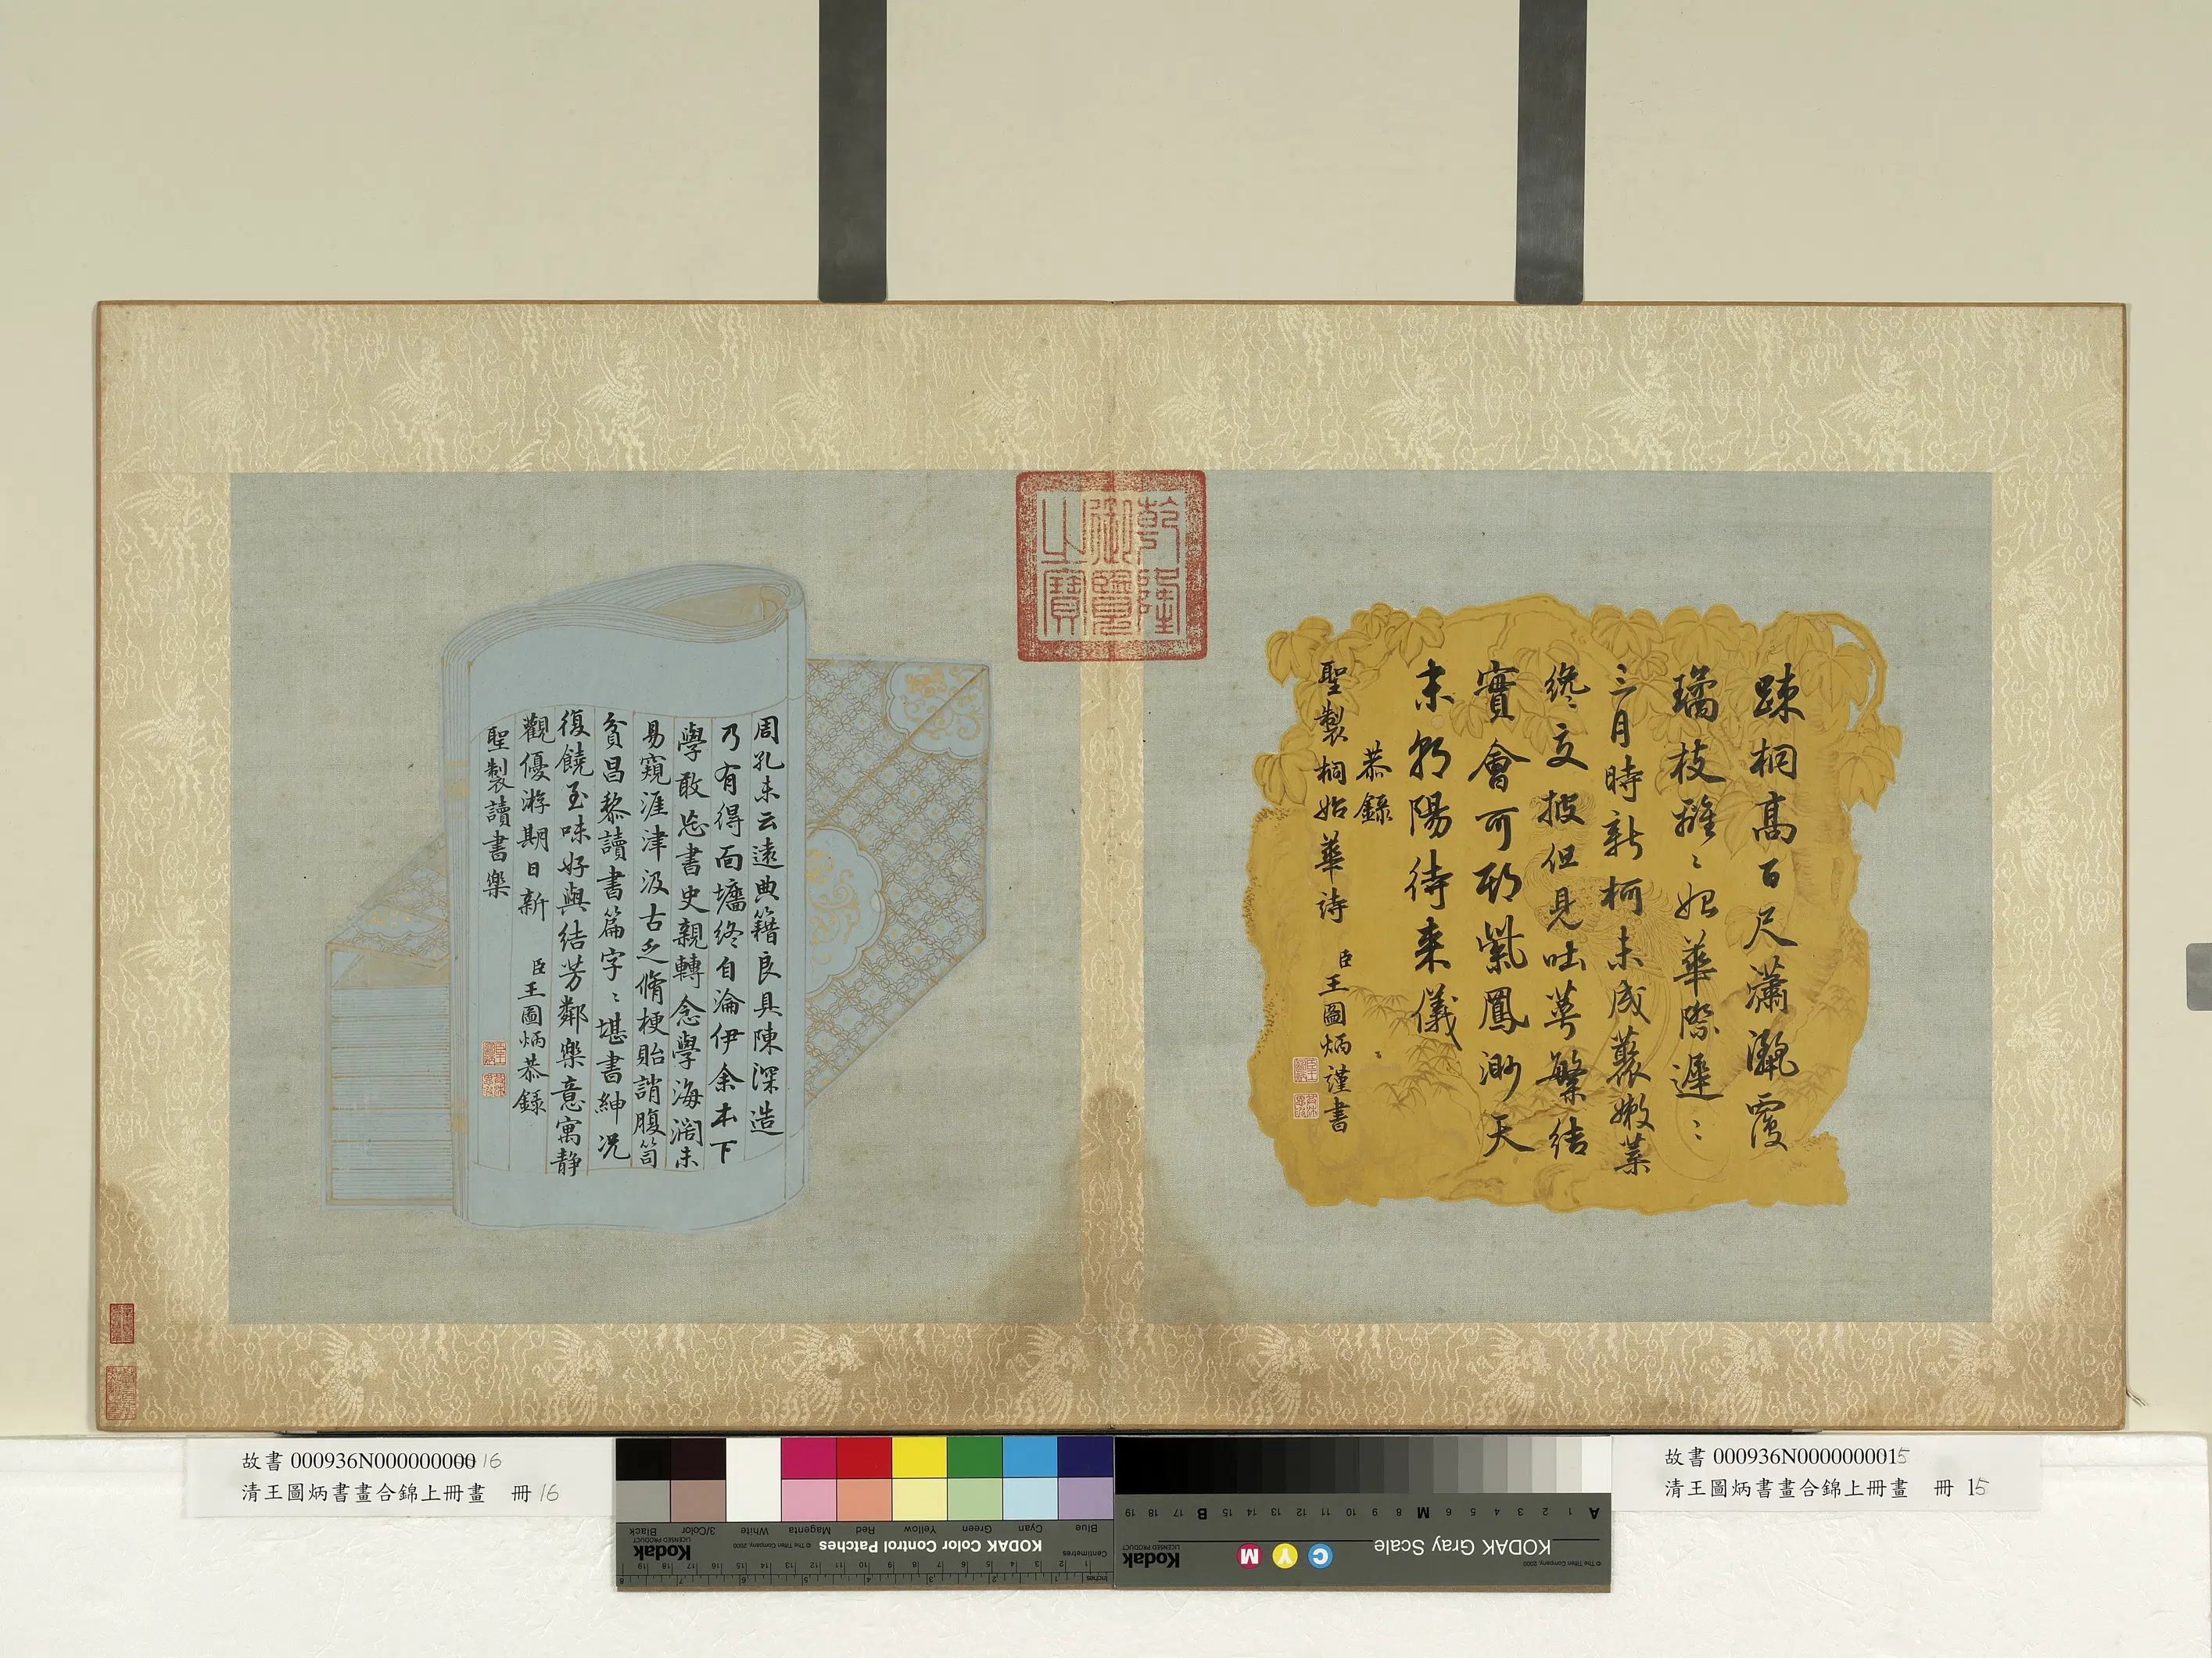 疎桐高百尺瀟灑覆
璚枝雝〻始華際遲〻
三月時新柯未成蔭嫩葉
纔交披但見吐萼繁結
實會可期紫鳳渺天
末朝陽待来儀
恭錄
聖製桐始華詩
臣王圖炳謹書
乾隆御覽之寶
周孔未云遠典籍良具陳深造
乃有得面墻終自淪伊余本下
學敢忘書史親轉念學海濶未
易窺涯津汲古乏脩梗貽誚腹笥
貧昌黎讀書篇字〻堪書紳况
復饒至味好與結芳鄰樂意寓静
觀優游期日新
聖製讀書樂
臣王圖炳恭錄
故書 000936N000000000 16
清王圖炳書畫合錦上冊畫 冊 16
故書 000936N0000000015
清王圖炳書畫合錦上冊畫 冊 15
Blue Cyan Green Yellow Red Magenta White 3/Color Black
KODAK Color Control Patches
© The Tiffen Company, 2000
Kodak
LICENSED PRODUCT
Centimetres
Inches
A 1 2 3 4 5 6 M 8 9 10 11 12 13 14 15 B 17 18 19
KODAK Gray Scale
C Y M
Kodak
LICENSED PRODUCT
© The Tiffen Company, 2000